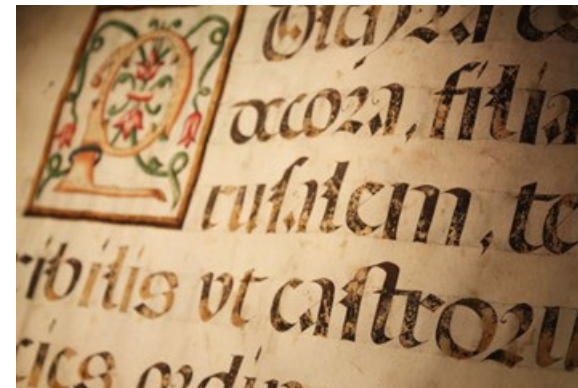 decora, filia
ruſalem, te
ribilis vt caſtroru
cies ordin